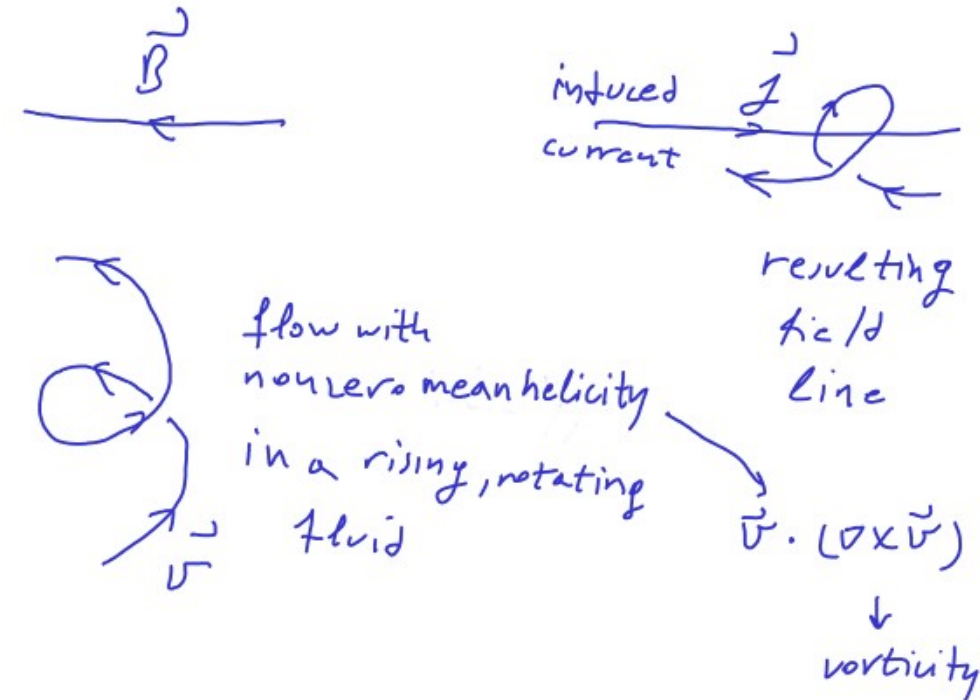 B⃗
induced J⃗
current
resulting
field
line
flow with
nonzero mean helicity
in a rising, rotating
fluid
v⃗
v⃗ · (∇×v⃗)
↓
vorticity